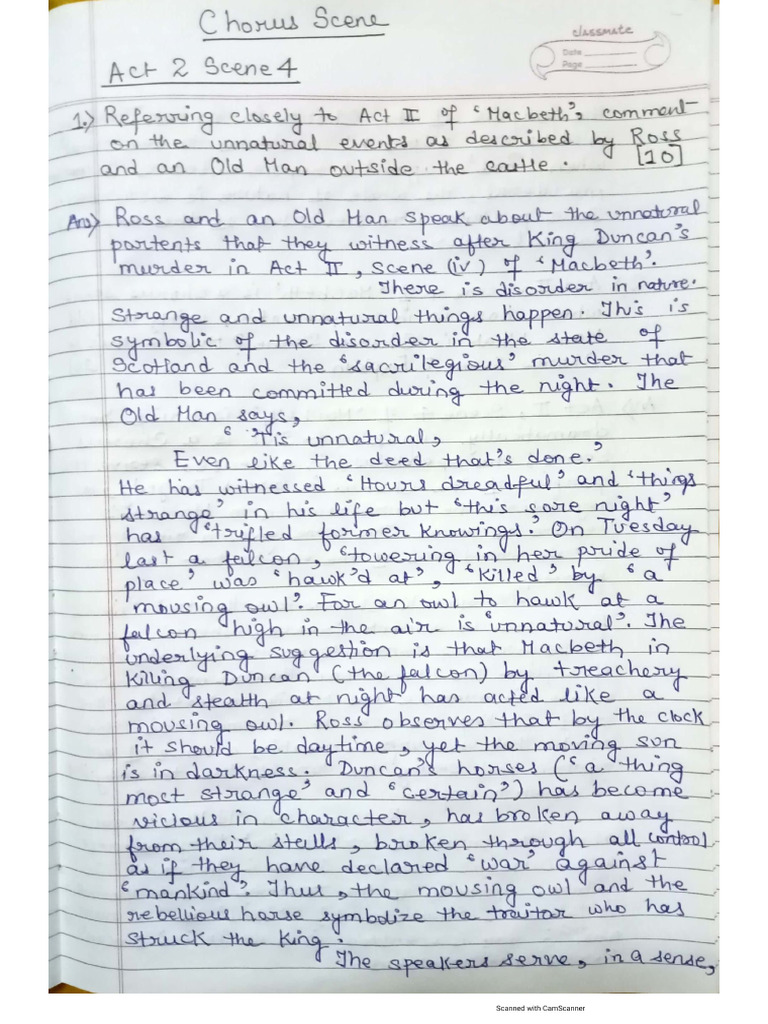 Chorus Scene
classmate
Date
Page
Act 2 Scene 4
1.) Referring closely to Act II of 'Macbeth', comment
on the unnatural events as described by Ross
and an Old Man outside the castle. [10]
Ans) Ross and an Old Man speak about the unnatural
partents that they witness after King Duncan's
murder in Act II, Scene (iv) of 'Macbeth'.
There is disorder in nature.
Strange and unnatural things happen. This is
symbolic of the disorder in the state of
Scotland and the 'sacrilegious' murder that
has been committed during the night. The
Old Man says,
' 'Tis unnatural,
Even like the deed that's done.'
He has witnessed 'Hours dreadful' and 'things
strange' in his life but 'this sore night'
has 'trifled former knowings.' On Tuesday
last a felcon, 'towering in her pride of
place' was 'hawk'd at', 'killed' by 'a
mousing owl'. For an owl to hawk at a
falcon high in the air is 'unnatural'. The
underlying suggestion is that Macbeth in
killing Duncan (the falcon) by treachery
and stealth at night has acted like a
mousing owl. Ross observes that by the clock
it should be daytime, yet the moving sun
is in darkness. Duncan's horses ('a thing
most strange' and 'certain') has become
vicious in character, has broken away
from their stalls, broken through all control
as if they have declared 'war' against
'mankind'. Thus, the mousing owl and the
rebellious horse symbolize the traitor who has
struck the King.
The speakers serve, in a sense,
Scanned with CamScanner